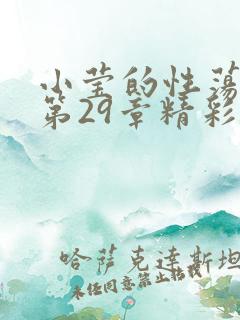 小莹的性荡
第29章精彩
哈萨克达斯坦
未经同意禁止转载